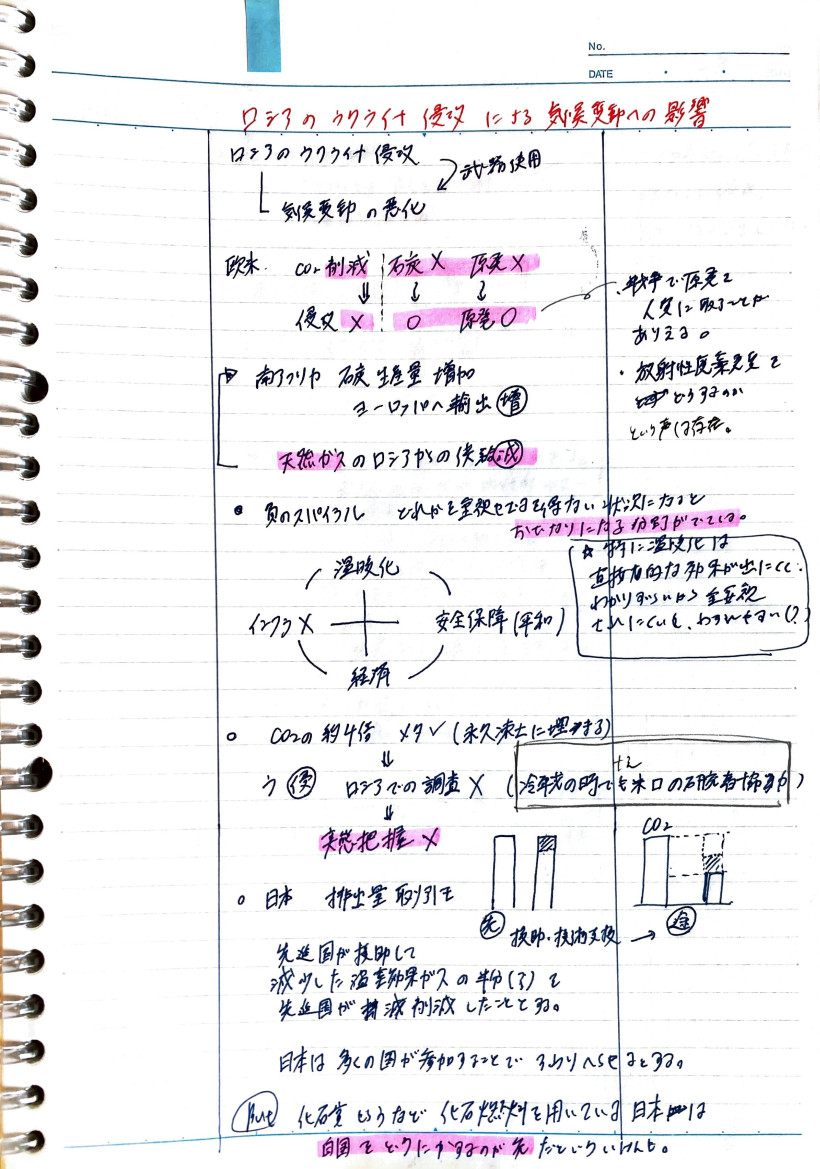 No.
DATE
ロシアのウクライナ侵攻による気候変動への影響
ロシアのウクライナ侵攻
武器使用
気候変動の悪化
欧米 CO2削減 石炭× 原発×
侵攻× ○ 原発○
・戦争で原発を
人質に取ることが
ありえる。
・放射性廃棄物を
どうするのか
という声は存在。
南アフリカ 石炭 生産量 増加
ヨーロッパへ輸出 増
天然ガスのロシアからの供給 減
負のスパイラル どれかを重視せざるを得ない状況になると
おざなりになる分野がでている。
☆ 特に温暖化は
直接的な効果が出にくく
わかりずらいから重要視
されにくいし、わすれやすい(?)
温暖化
インフラ×
安全保障(平和)
経済
CO2の約4倍 メタン (永久凍土に埋まる)
ウ 侵 ロシアでの調査 × (冷戦の時でさえ米ロの研究者協力)
実態把握 ×
CO2
日本 排出量取り引き
先 援助・技術支援 → 途
先進国が援助して
減少した温室効果ガスの半分(?)を
先進国が削減したこととする。
日本は多くの国が参加することで よりへらせるとする。
But 化石賞とるなど化石燃料を用いている日本は
自国をどうにかするのが先だといういけんも。